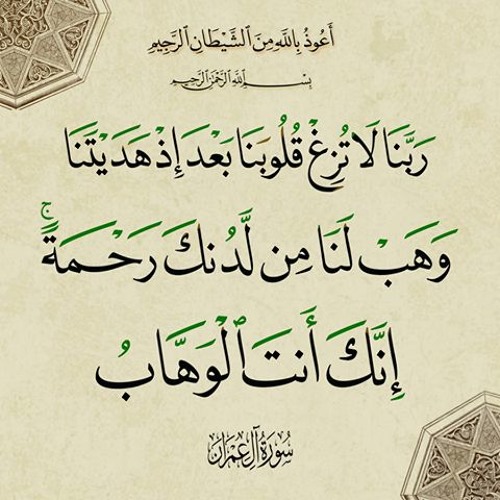 أَعُوذُ بِٱللَّهِ مِنَ ٱلشَّيْطَانِ ٱلرَّجِيمِ
بِسْمِ ٱللَّهِ ٱلرَّحْمَٰنِ ٱلرَّحِيمِ
رَبَّنَا لَا تُزِغْ قُلُوبَنَا بَعْدَ إِذْ هَدَيْتَنَا
وَهَبْ لَنَا مِن لَّدُنكَ رَحْمَةً ۚ
إِنَّكَ أَنتَ ٱلْوَهَّابُ
سُورَةُ آلِ عِمْرَانَ